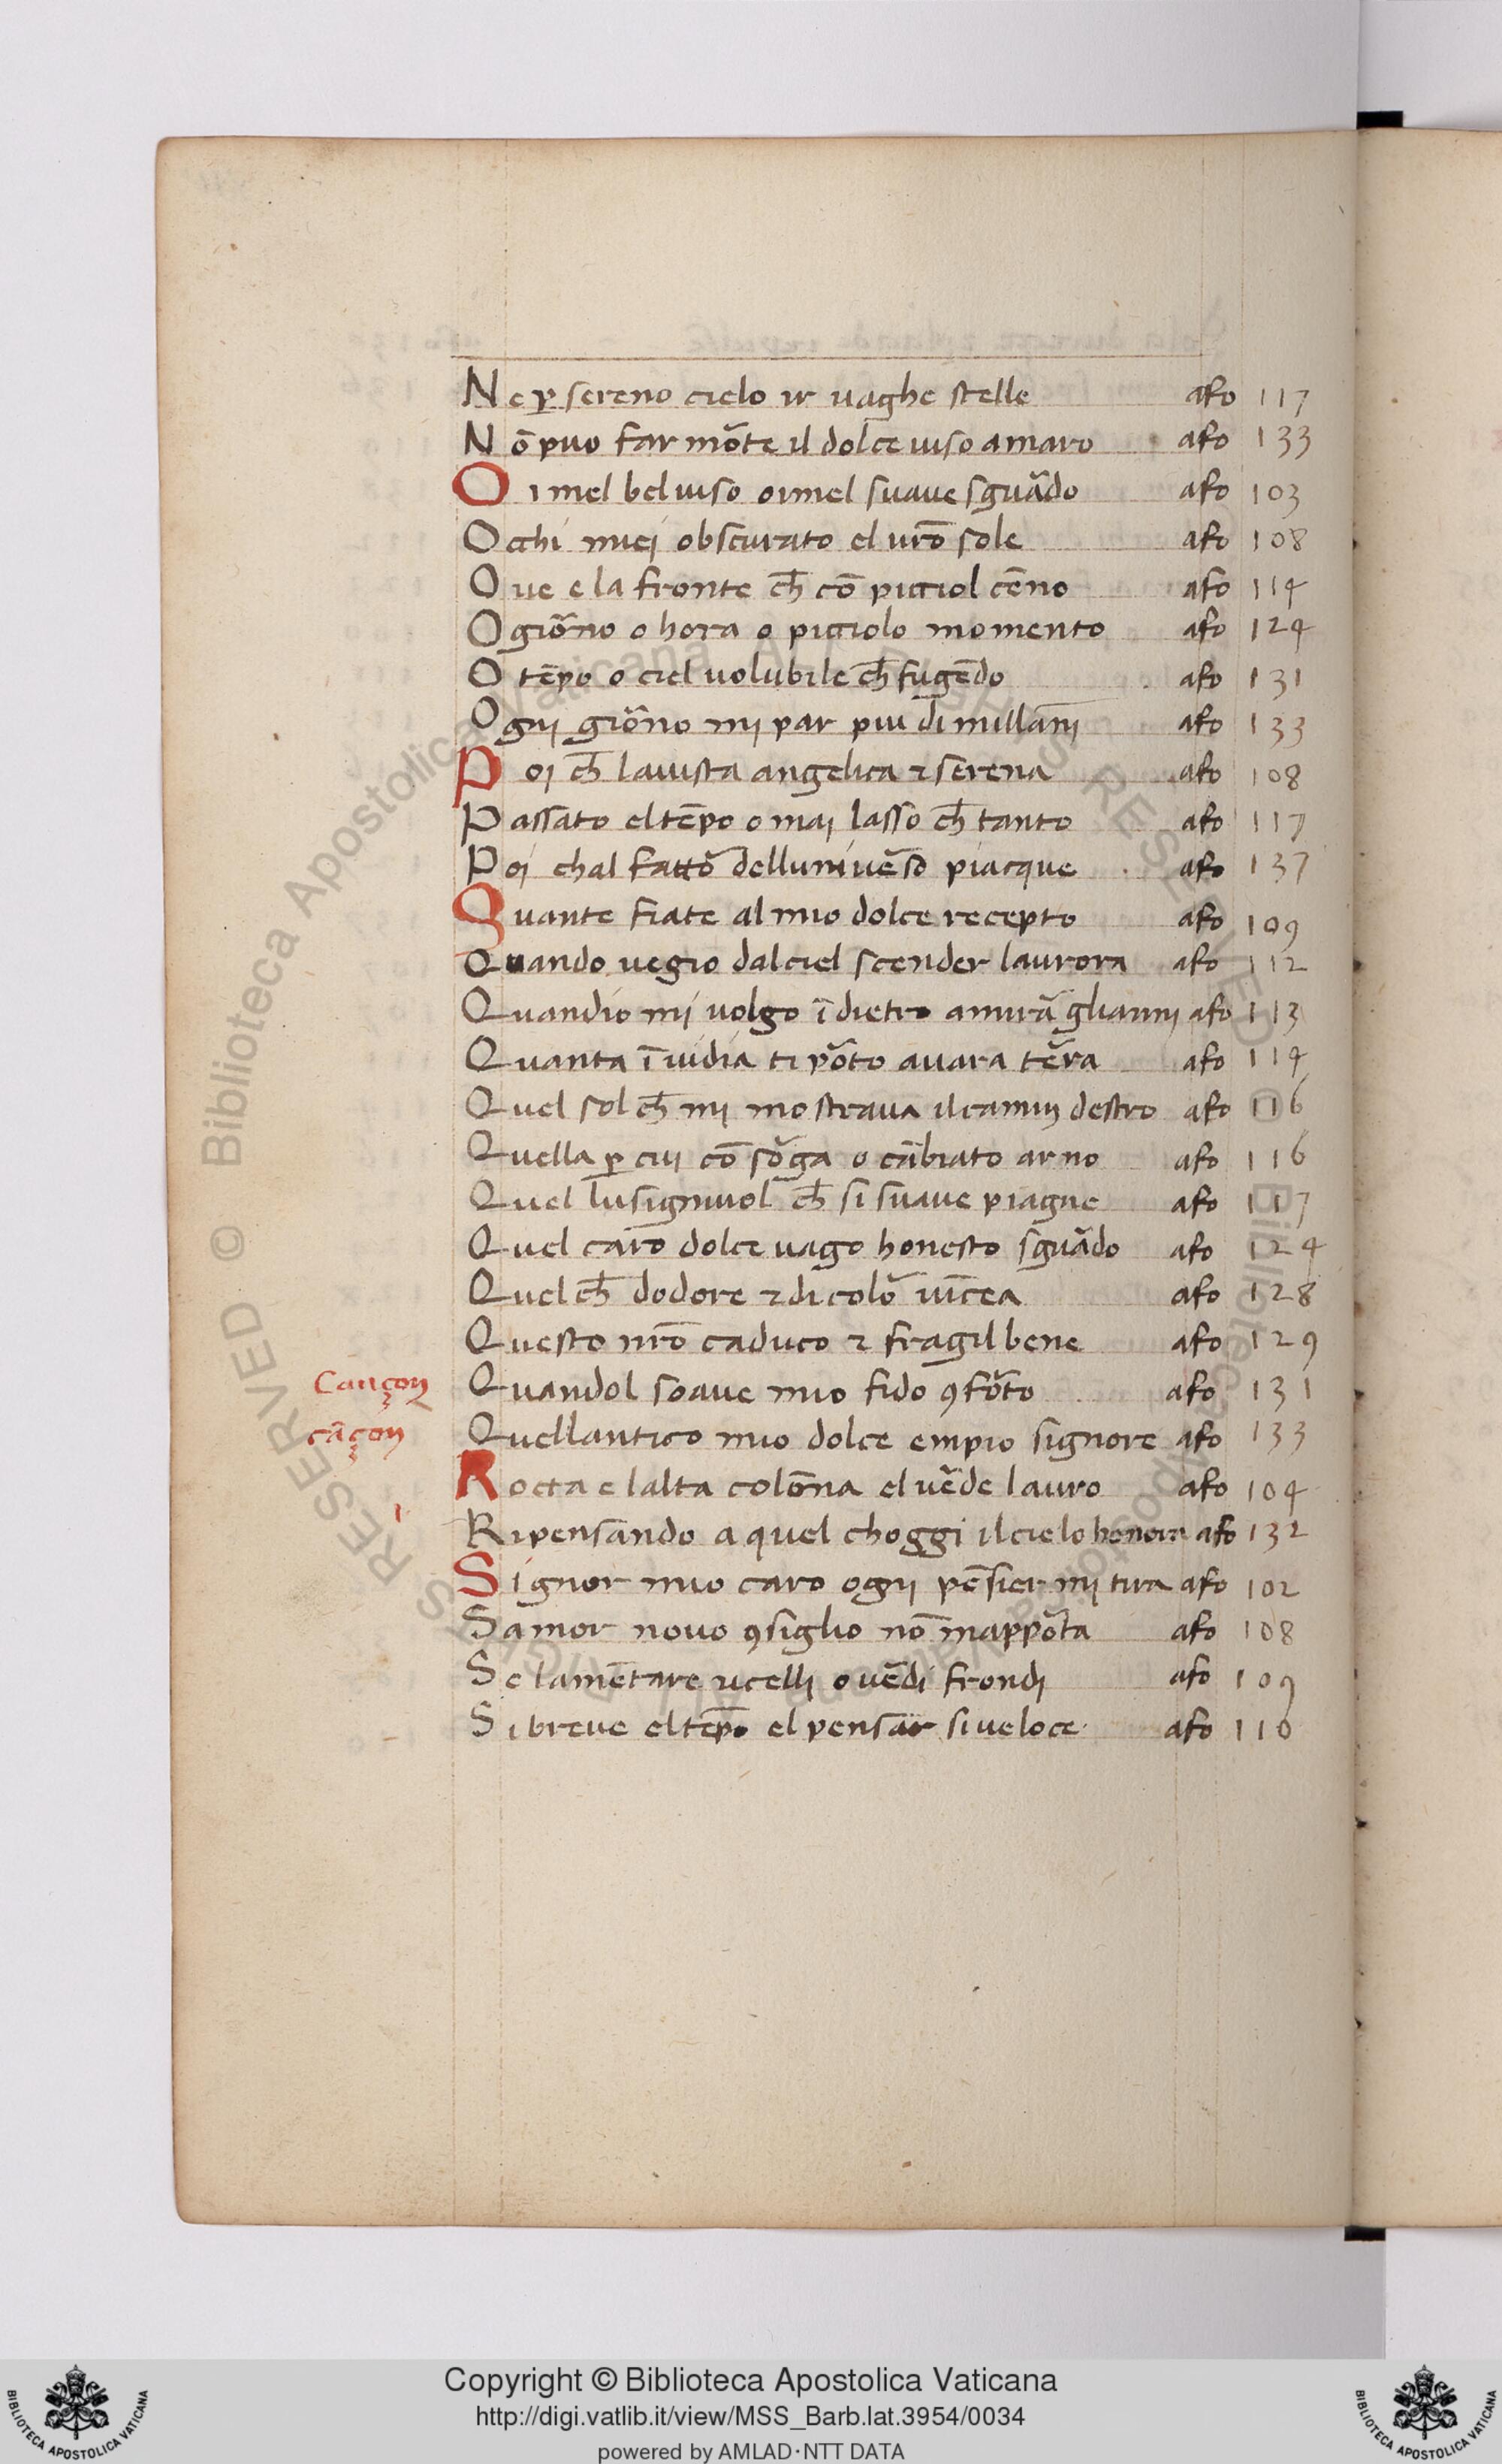 Ne ꝑ sereno cielo ir vaghe stelle afo 117
Nō puo far mōte il dolce viso amaro afo 133
Oimel bel viso oimel suave sguādo afo 103
Occhi miej obscurato el vrō sole afo 108
Ove e la fronte ch̄ cō picciol cēno afo 114
O giōrno o hora o picciolo momento afo 124
O tēpo o ciel volubile ch̄ fugēdo afo 131
Ognj giōrno mj par piu di millānj afo 133
Poj ch̄ lavista angelica ⁊ serena afo 108
Passato el tēpo o maj lasso ch̄ tanto afo 117
Poj chal fattō delluniuēso piacque afo 137
Quante fiate al mio dolce recepto afo 109
Quando vegio dalciel scender laurora afo 112
Quandio mi volgo ī dietro amirā gliannj afo 113
Quanta īvidia ti pōto avara tēra afo 114
Quel sol ch̄ mj mostrava il camin destro afo 116
Quella ꝑ cuj cō sōga o cābiato arno afo 116
Quel lusigniuol ch̄ si suave piagne afo 117
Quel caro dolce vago honesto sguādo afo 124
Quel ch̄ dodore ⁊ di colō vīcea afo 128
Questo nrō caduco ⁊ fragil bene afo 129
Cançon Quandol soave mio fido ꝯfōto afo 131
cāçon Quellantico mio dolce empio signore afo 133
Rocta e lalta colōna el vēde lauro afo 104
Ripensando a quel choggi il cielo honora afo 132
Signor mio caro ognj pēsier mj tira afo 102
Samor novo ꝯsiglio nō mappōta afo 108
Se lamētare ucellj o vēdi frondj afo 109
Si breve el tēpo el pensar si veloce afo 110
Copyright © Biblioteca Apostolica Vaticana
http://digi.vatlib.it/view/MSS_Barb.lat.3954/0034
powered by AMLAD·NTT DATA